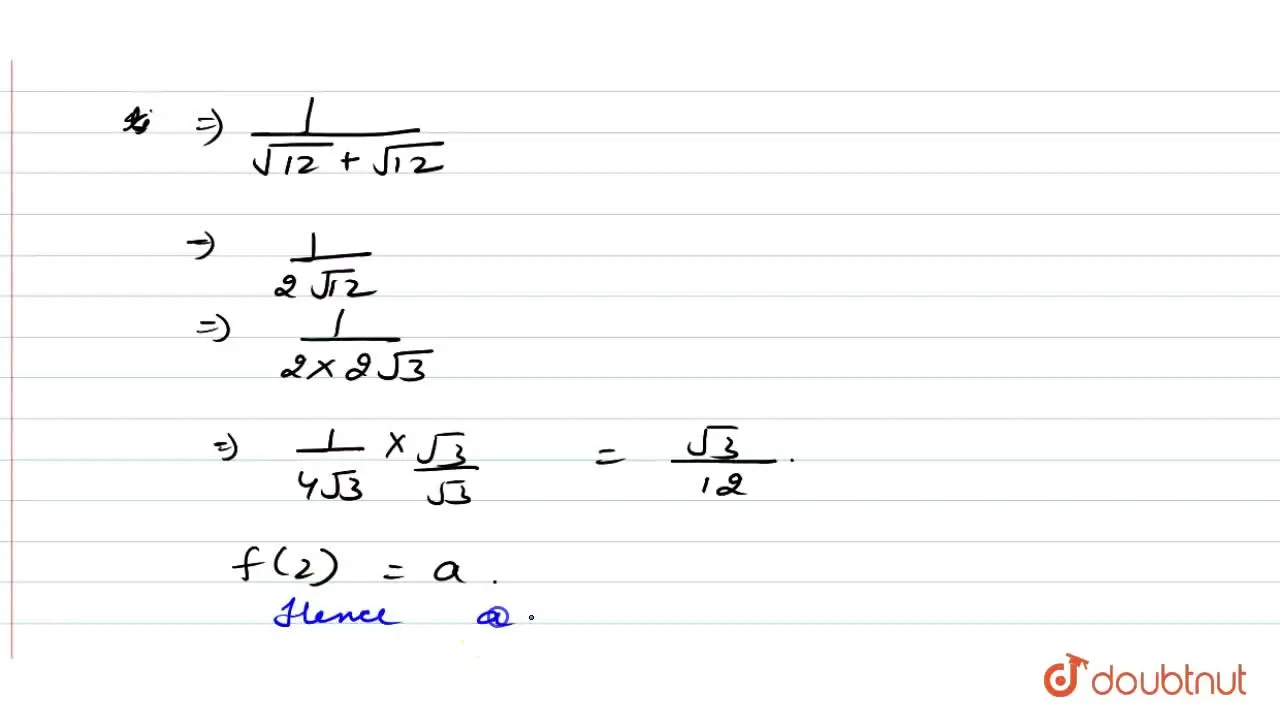 =) 1/(√12 + √12)
=) 1/(2√12)
=) 1/(2×2√3)
=) 1/(4√3) × √3/√3 = √3/12.
f(2) = a.
Hence a
doubtnut